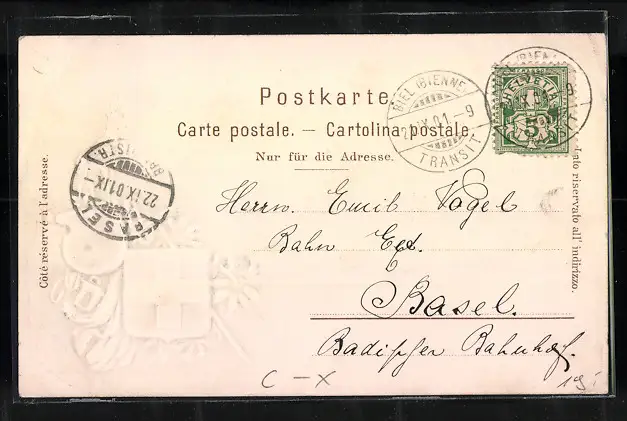 Postkarte.
Carte postale. — Cartolina postale.
Nur für die Adresse.
Côté réservé à l'adresse.
Lato riservato all' indirizzo.
BIEL (BIENNE)
IX.01.-9
TRANSIT
HELVETIA
5
22.IX.01.IX-
BASEL
Herrn. Emil Vogel
Bahn Exp.
Basel.
Badischer Bahnhof.
C – X